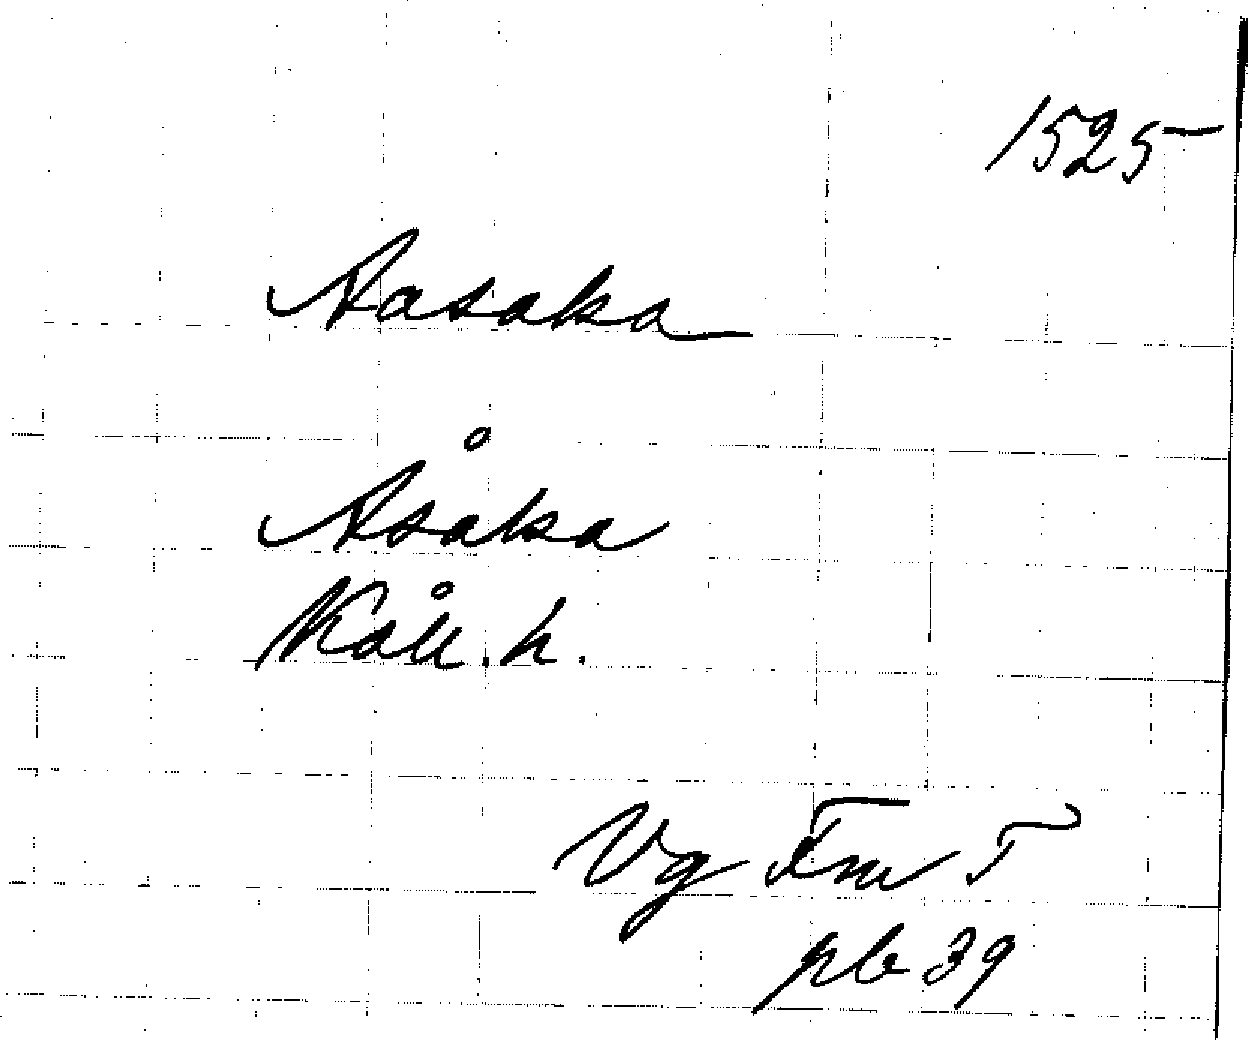 1525
Aasaka
Åsaka
Kåll. h.
Vg Fm T
pb 39